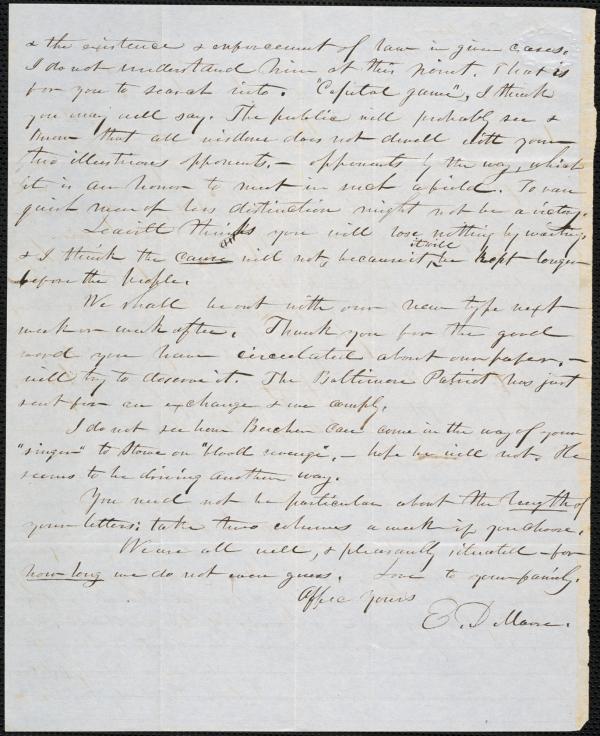 & the existence & enforcement of law in given cases.
I do not understand him at this point. That is
for you to search into. "Capital game", I think
you may well say. The public will probably see &
know that all wisdom does not dwell with your
two illustrious opponents. — opponents by the way, which
it is an honor to meet in such a field. To van
quish men of less distinction might not be a victory.
Leavitt thinks you will lose nothing by waiting,
& I think the cause will not, because it will be kept longer
before the people.
We shall be out with our new type next
week or week after. Thank you for the good
word you have circulated about our paper, —
will try to deserve it. The Baltimore Patriot has just
sent for an exchange & we comply.
I do not see how Beecher can come in the way of your
"singer" to Stowe on "blood revenge", — hope he will not. He
seems to be driving another way.
You need not be particular about the length of
your letters; take two columns a week if you choose.
We are all well, & pleasantly situated — for
how long we do not even guess. Love to your family.
Affec yours
E. D. Moore.